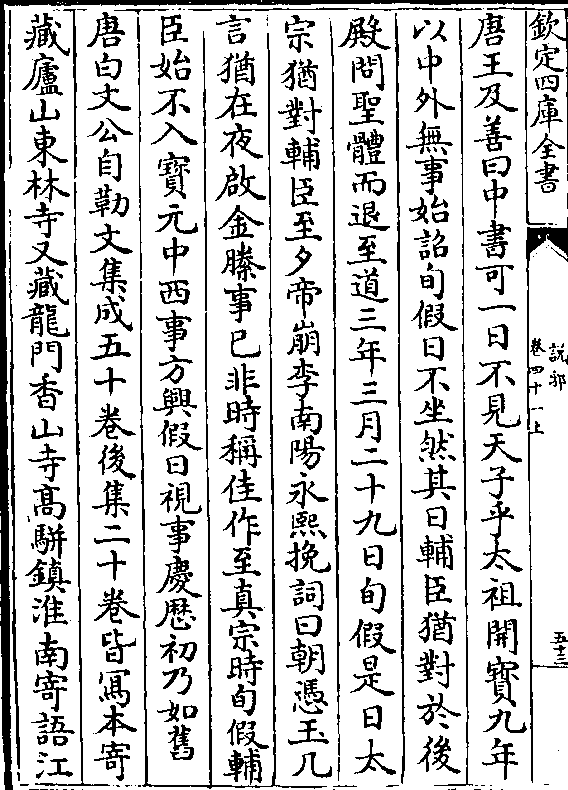 欽定四庫全書
說郛
卷四十一上
五十三
唐王及善曰中書可一日不見天子乎太祖開寶九年
以中外無事始詔旬假日不坐然其日輔臣猶對於後
殿問聖體而退至道三年三月二十九日旬假是日太
宗猶對輔臣至夕帝崩李南陽永熙挽詞曰朝憑玉几
言猶在夜啟金縢事已非時稱佳作至真宗時旬假輔
臣始不入寶元中西事方興假日視事慶歷初乃如舊
唐白文公自勒文集成五十卷後集二十卷皆寫本寄
藏廬山東林寺又藏龍門香山寺高駢鎮淮南寄語江